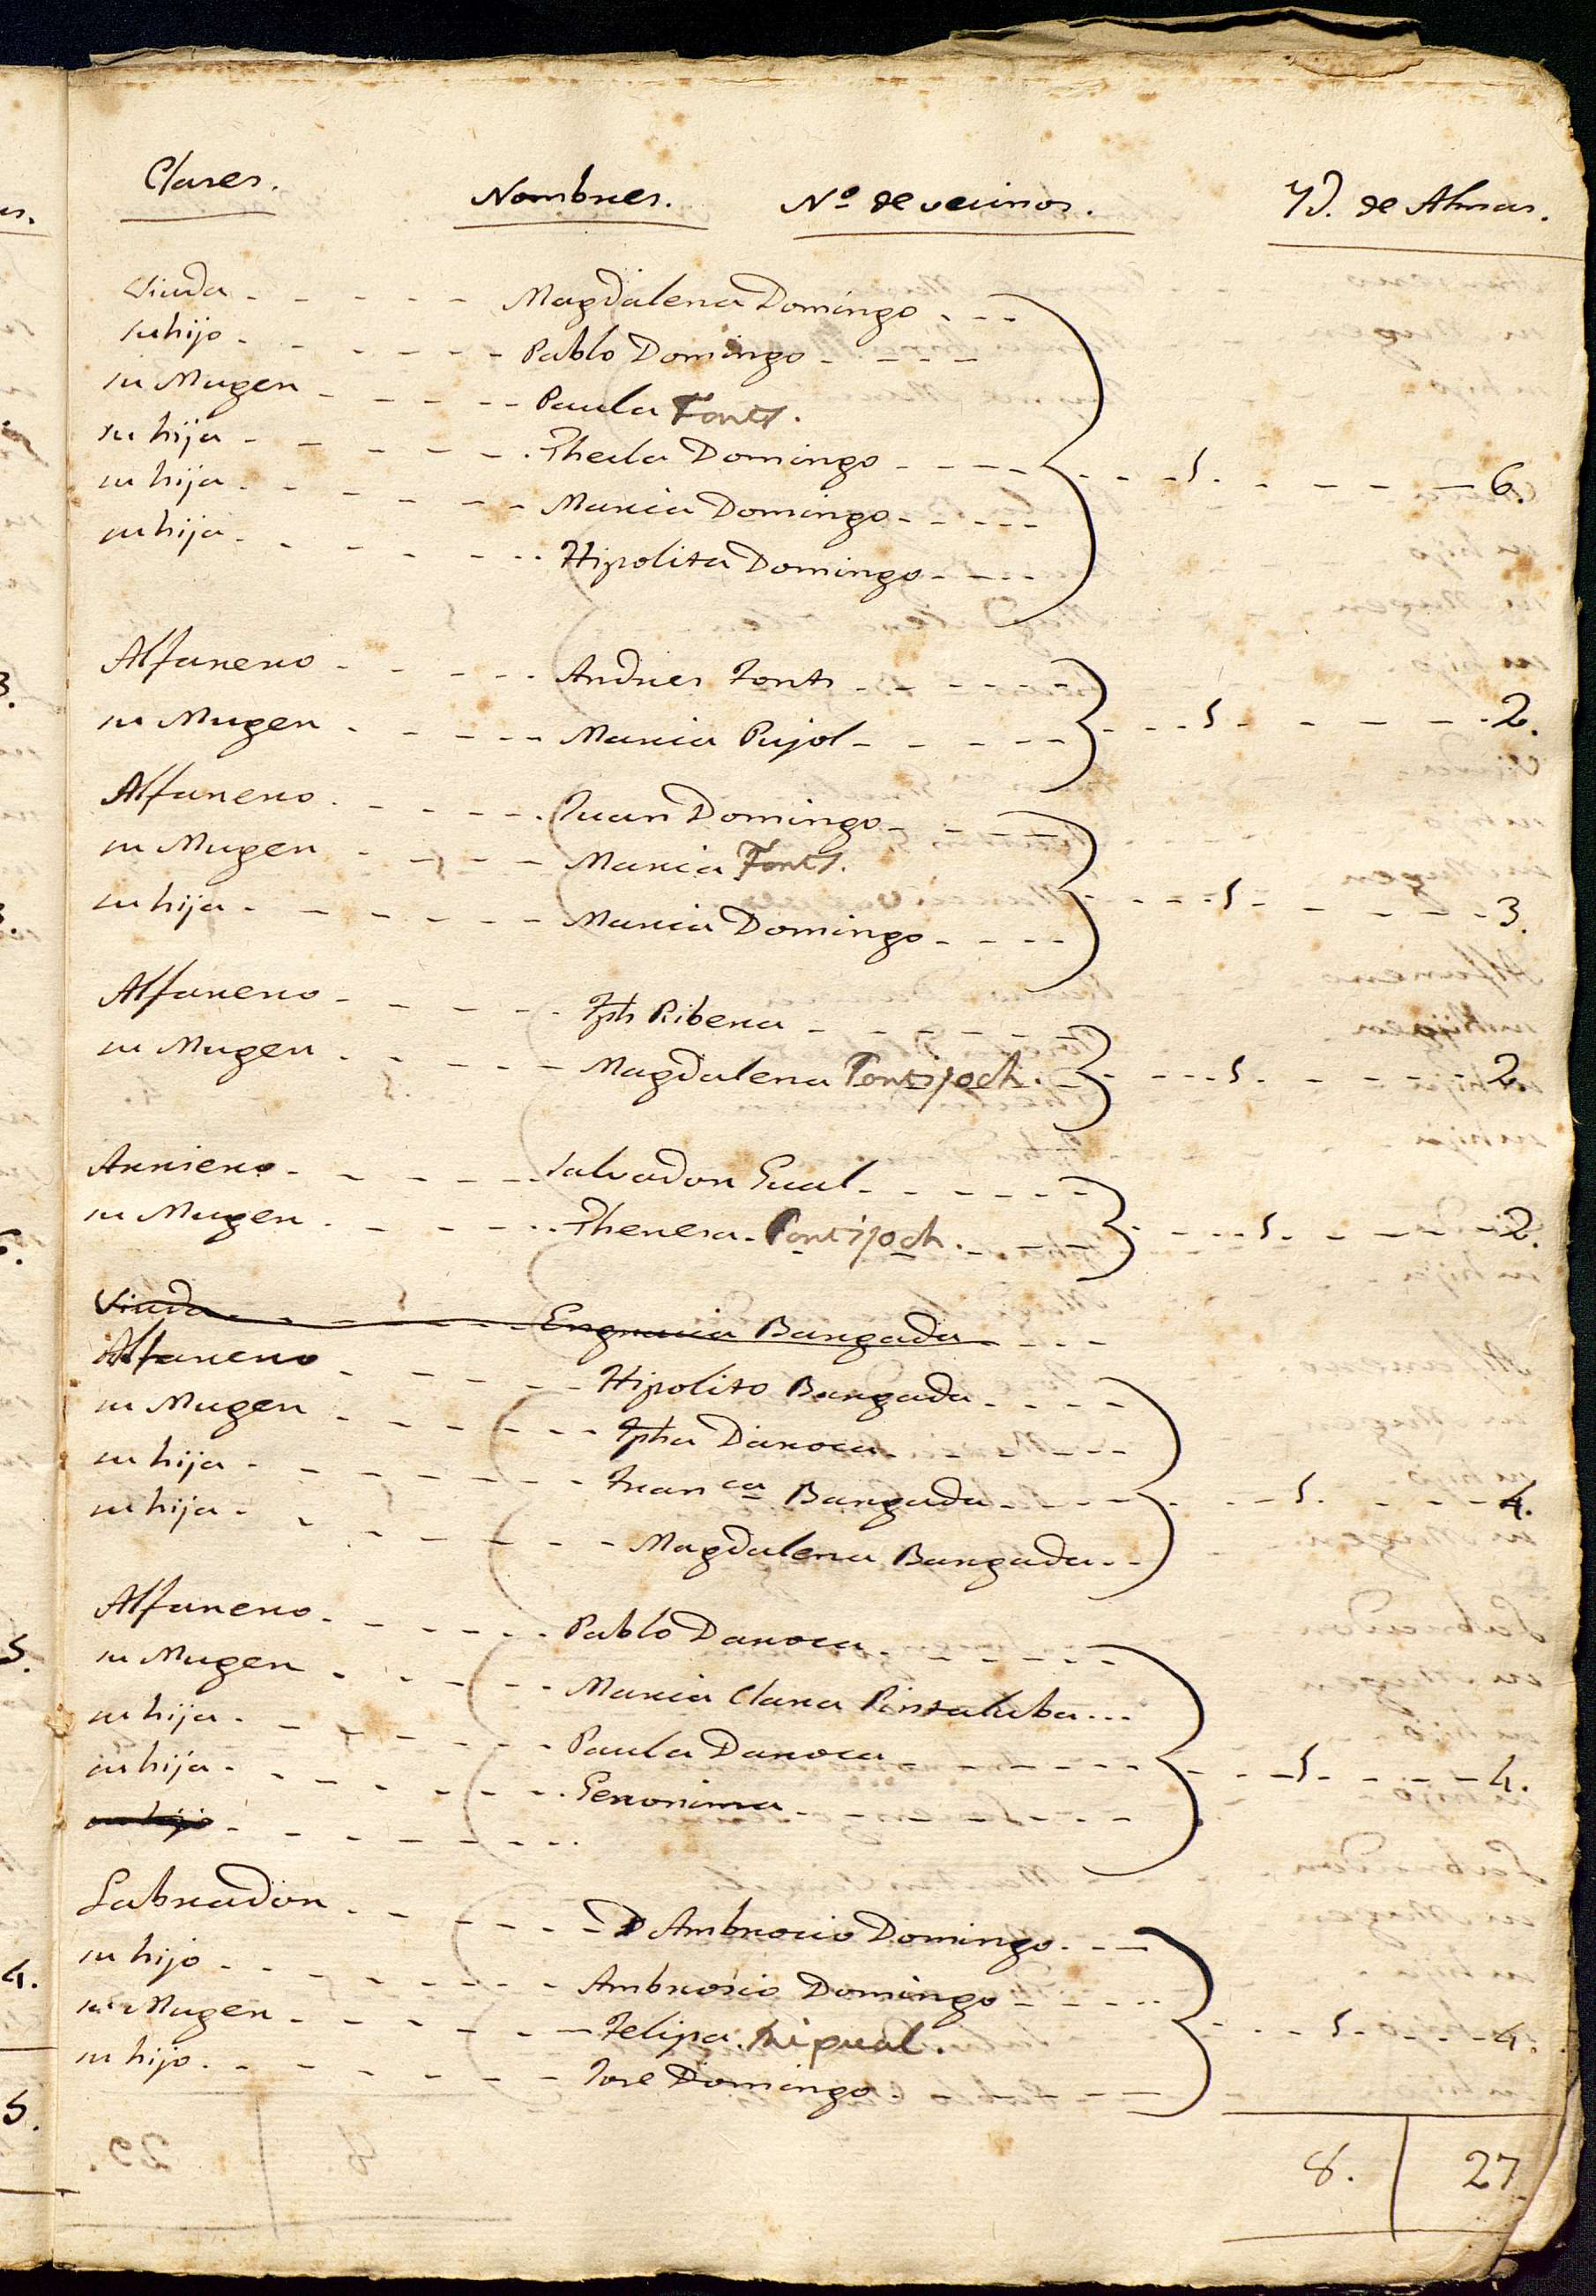 Clases. Nombres. Nº de vecinos. Yd. de Almas.
Viuda - - - - - Magdalena Domingo - - -
su hijo - - - - - - Pablo Domingo - - - -
su Muger - - - - - Paula Fonts.
su hija - - - - - - Thecla Domingo - - - - 1. - - - - - 6.
su hija - - - - - - Maria Domingo - - - - -
su hija - - - - - - Hipolita Domingo - - - -
Alfarero - - - - - Andres Fonts - - - - - -
su Muger - - - - - Maria Pujol - - - - - - 1. - - - - - 2.
Alfarero - - - - - Juan Domingo - - - - -
su Muger - - - - - Maria Fonts.
su hija - - - - - - Maria Domingo - - - - 1. - - - - - 3.
Alfarero - - - - - Jph Ribera - - - - - -
su Muger - - - - - Magdalena Fontsjoch. - 1. - - - - - 2
Arriero - - - - - Salvador Gual - - - - - -
su Muger - - - - - Theresa Fontsjoch. - - - 1. - - - - - 2.
Viuda - - - - - Engracia Bargada - - -
Alfarero - - - - - Hipolito Bargada - - - -
su Muger - - - - - - Jpha Daroca - - - -
su hija - - - - - - Fran ca Bargada - - - - 1. - - - - 4.
su hija - - - - - - Magdalena Bargada - -
Alfarero - - - - - Pablo Daroca - - - - - -
su Muger - - - - - Maria Clara Pintaluba - - -
su hija - - - - - - Paula Daroca - - - - - 1. - - - - 4.
su hija - - - - - - Geronima - - - - - -
su hijo - - - - - - -
Labrador - - - - - D Ambrocio Domingo - - -
su hijo - - - - - - Ambrosio Domingo - - - - -
su Muger - - - - - - Felipa - - - 1. - - - - 4.
su hijo - - - - - - Jose Domingo - - - -
8. 27